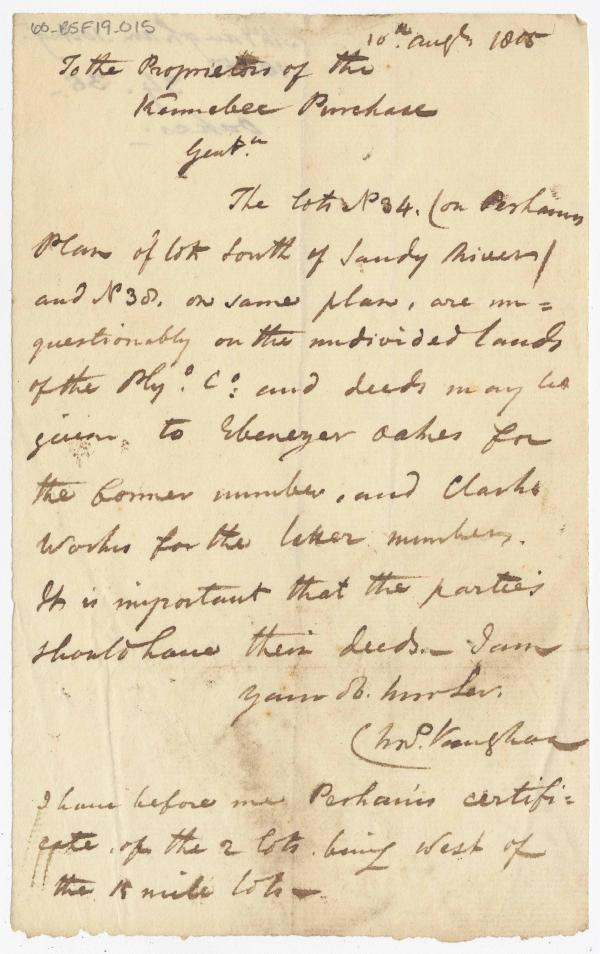 60-BSF19-015
10th Augt 1805
To the Proprietors of the
Kennebec Purchase
Gentn.
The lots No 34. (on Perhams
Plan of lots South of Sandy River)
and No 38. on same plan, are un=
questionably on the undivided lands
of the Ply.o Co: and deeds may be
given to Ebenezer Oakes for
the former number, and Clark
Works for the latter number.
It is important that the parties
should have their deeds. – I am
Your ob. hum Ser.
Chas. Vaughan
I have before me Perham's certifi=
cate of the 2 lots being West of
the 15 mile lots –